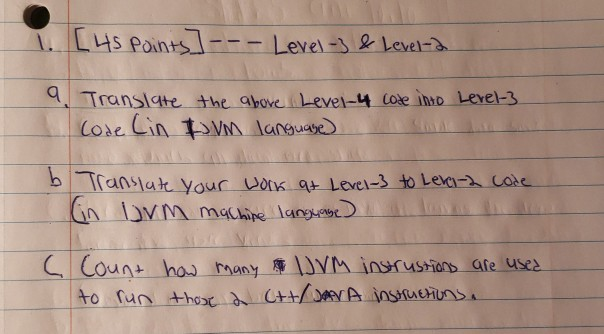 1. [45 Points] --- Level-3 & Level-2
a. Translate the above Level-4 code into Level-3
Code (in IJVM language)
b Translate your work at Level-3 to Level-2 code
(in IJVM machine language)
C Count how many IJVM instrustions are used
to run those 2 C++/JAVA instructions.